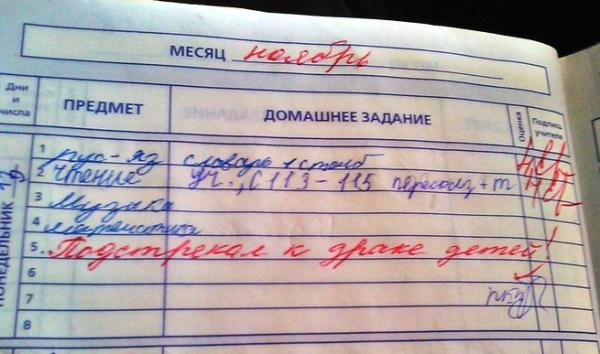 МЕСЯЦ ноябрь
Дни и числа ПРЕДМЕТ ДОМАШНЕЕ ЗАДАНИЕ Оценка Подпись учителя
ПОНЕДЕЛЬНИК
1 рус-яз словарь 1 столб
2 Чтение уч., с 113-115 пересказ + т
3 Музыка
4 математика
5. Подстрекал к драке детей!
6
7
8